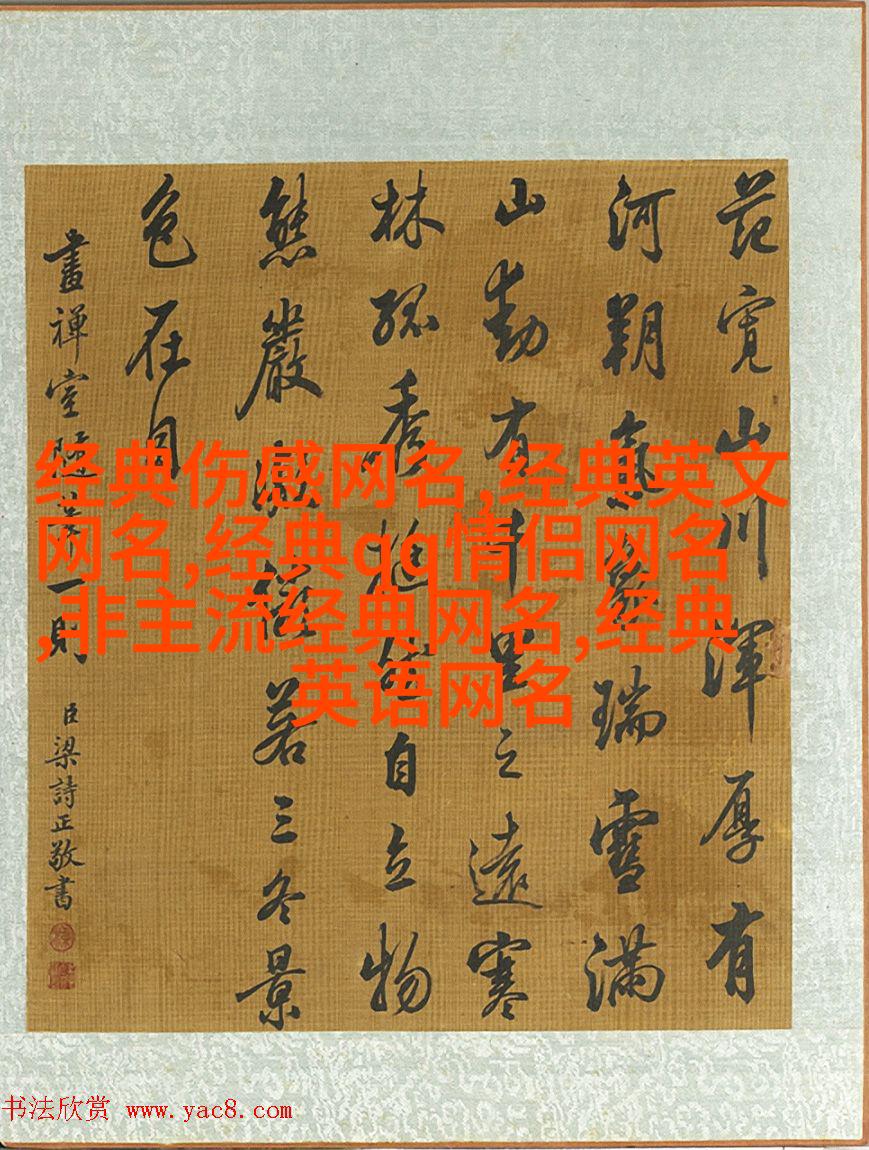 范寬山川渾厚有
河朔氣象瑞雪滿
山動有千里之遠寒
林孤秀挺然自立物
態嚴凝儼若三冬景
色在目
畫禪室隨筆一則
臣梁詩正敬書
经典伤感网名,经典英文
网名,经典qq情侣网名
,非主流经典网名,经典
英语网名
书法欣赏 www.yac8.com